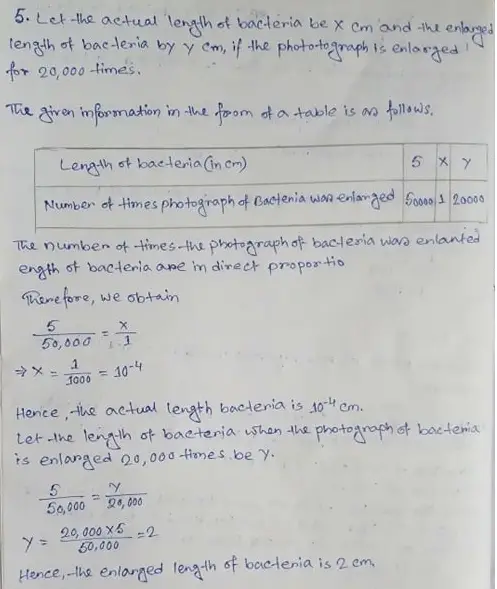 5. Let the actual length of bacteria be x cm and the enlarged
length of bacteria by y cm, if the phototograph is enlarged
for 20,000 times.
The given information in the form of a table is as follows.
Length of bacteria (in cm) 5 x y
Number of times photograph of Bacteria was enlarged 50000 1 20000
The number of times the photograph of bacteria was enlanted
ength of bacteria are in direct proportio
Therefore, we obtain
5/50,000 = x/1
⇒ x = 1/1000 = 10⁻⁴
Hence, the actual length bacteria is 10⁻⁴ cm.
Let the length of bacteria when the photograph of bacteria
is enlarged 20,000 times be y.
5/50,000 = y/20,000
y = 20,000 x 5/50,000 = 2
Hence, the enlarged length of bacteria is 2 cm.